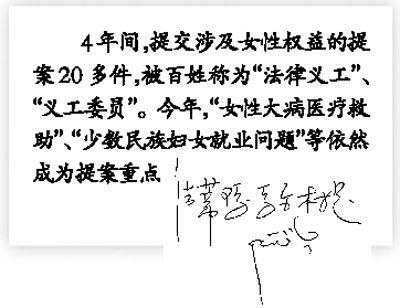 4年间,提交涉及女性权益的提
案20多件,被百姓称为“法律义工”、
“义工委员”。今年,“女性大病医疗救
助”、“少数民族妇女就业问题”等依然
成为提案重点